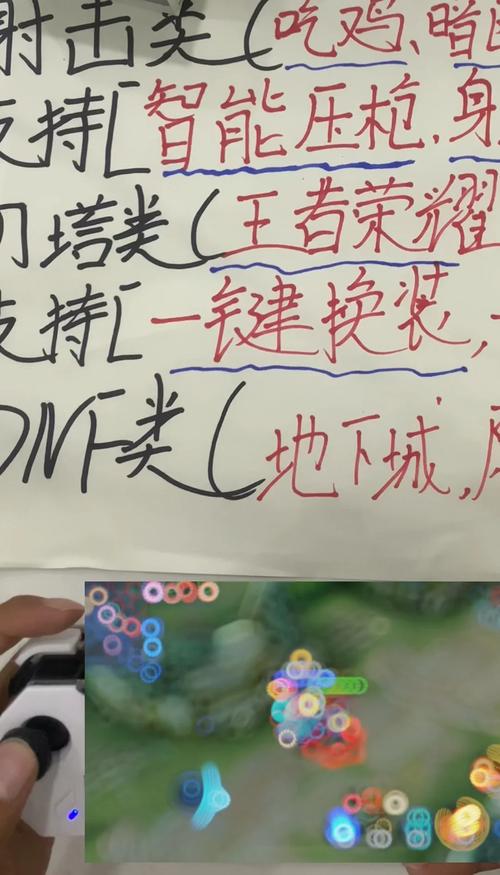 射击类(吃鸡、暗
支持[智能压枪.身
刀塔类(王者荣耀
支持[一键换装,
DNF类(地下城,